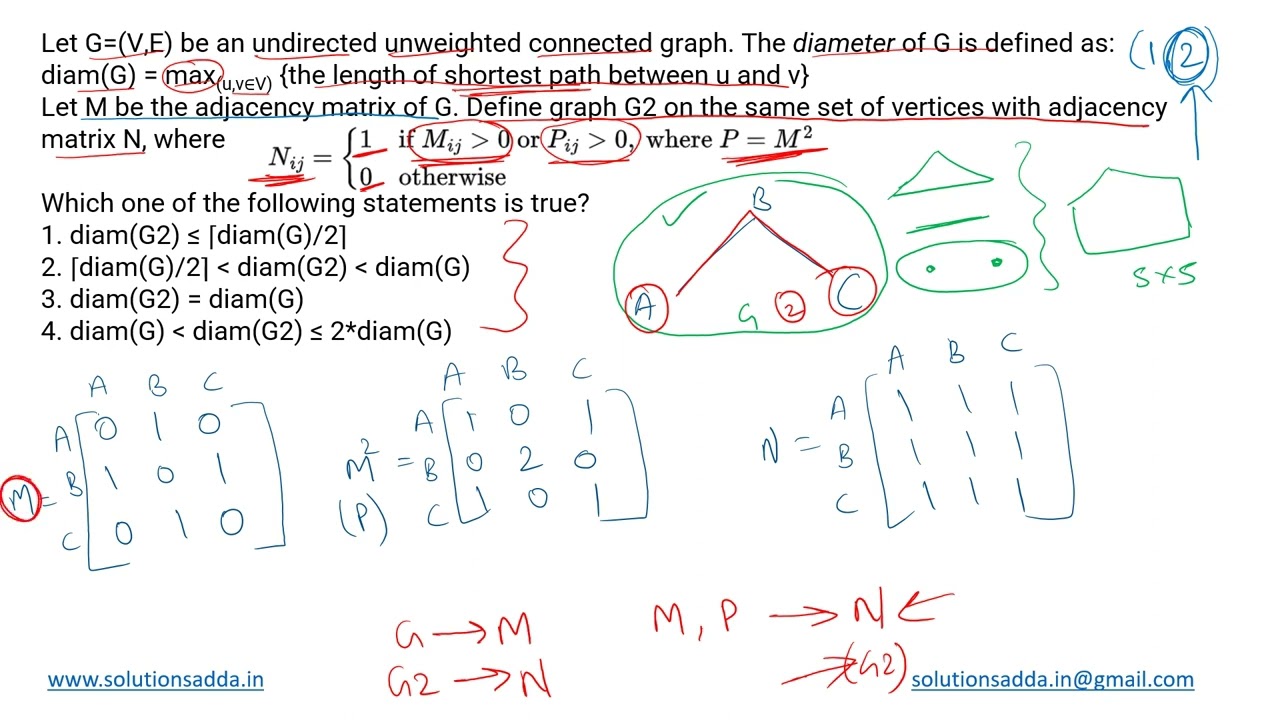 Let G=(V,E) be an undirected unweighted connected graph. The diameter of G is defined as:
(1, 2)
diam(G) = max(u,v∈V) {the length of shortest path between u and v}
Let M be the adjacency matrix of G. Define graph G2 on the same set of vertices with adjacency
matrix N, where
N_ij = { 1 if M_ij > 0 or P_ij > 0, where P = M²
0 otherwise
Which one of the following statements is true?
1. diam(G2) ≤ ⌈diam(G)/2⌉
2. ⌈diam(G)/2⌉ < diam(G2) < diam(G)
3. diam(G2) = diam(G)
4. diam(G) < diam(G2) ≤ 2*diam(G)
B
A C
G 2
5x5
A B C
M =
A 0 1 0
B 1 0 1
C 0 1 0
A B C
M² =
(P)
A 1 0 1
B 0 2 0
C 1 0 1
A B C
N =
A 1 1 1
B 1 1 1
C 1 1 1
G → M
G2 → N
M, P → N ←
→ (G2)
www.solutionsadda.in
solutionsadda.in@gmail.com